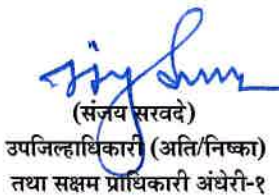 (संजय सरवदे)
उपजिल्हाधिकारी (अति/निष्का)
तथा सक्षम प्राधिकारी अंधेरी-१